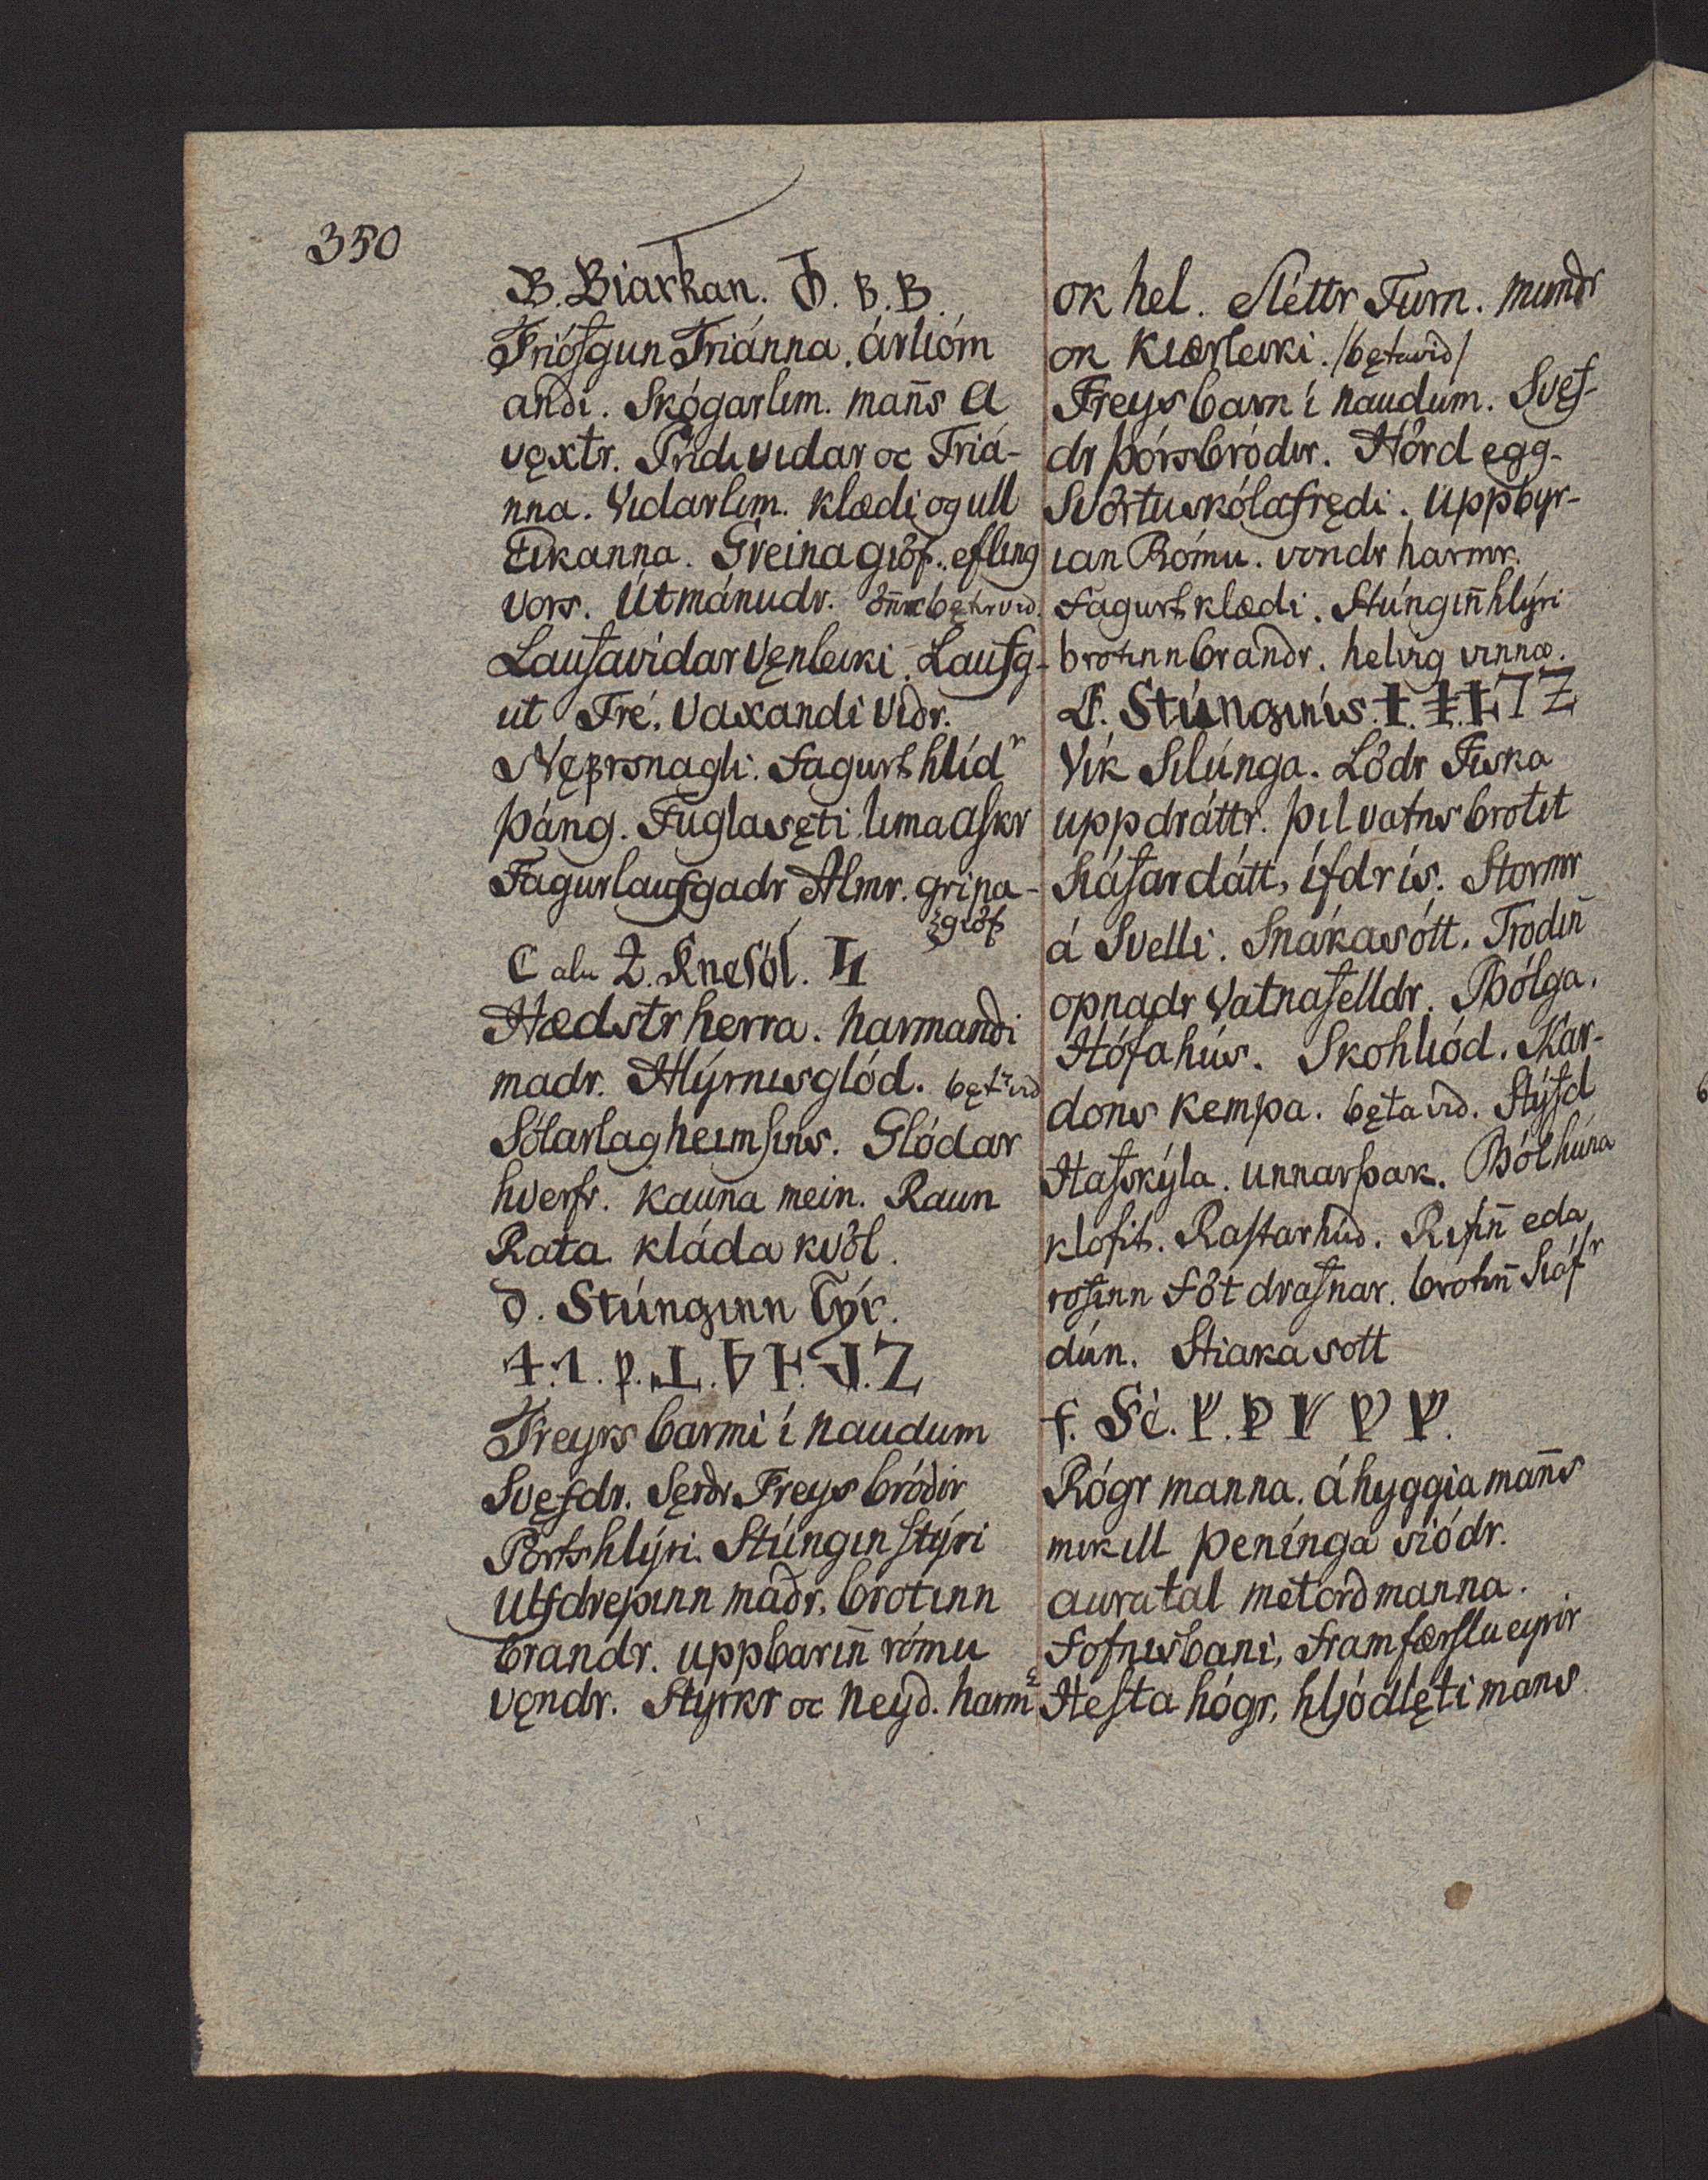 350
B. Biarkan. B. B.
Friófgun Triánna. árlióm
andi. Skógarlim. mans̄ a
vęxtr. Pridi vidar oc Triá-
nna. Vidarlim. klædi og ull
Eikanna. Greina giöf. efling
vors. Útmánudr.
Laufavidar vęnleiki. Laufg-
ut Tré. vaxandi vidr.
Nęfrsnagli. fagurt hlídr
þáng. Fuglasęti lima askr
Fagurlaufgadr Almr. gripa-
giöf
C alu Z. Knesól. ᛋ
Hædstr herra. harmandi
madr. Hlýrnisglód. bęt vid
Sólarlag heimsins. Glódar
hverfr. kauna mein. Raun
Rata kláda kvöl.
d. Stúnginn Týr.
Freyrs barmi í naudum
Svęfdr. Sęrdr Freys bródir
Portshlýri. Stúngin stýri
Utfdrepinn madr. brotinn
brandr. uppbarin̄ rómu
vęndr. Styrkr oc neyd. harm
ok hel. Sléttr Turn. mundr
ok kiærleiki. /bętavid/
Freys barn í naudum. Svęf-
dr þórsbródir. Hörd egg.
Svörtuskólafrędi. Uppbyr-
ian Rómu. vondr harmr.
fagurt klædi. Stúngin̄ hlýri
brotinn brandr. helvig vinnæ.
E. Stúnginís. ᚽ. ᚽ. ᚽ 7 Z
Vik Silúnga. Lödr Fiska
uppdráttr. þil vatns brotit
Siáfardátt, ífdr ís. Stormr
á Svelli. Snákasótt. Trodin̄
opnadr Vatnafelldr. Bólga.
Hófahús. Skohliód. Kar-
dons kempa. bęta vid. Stýfd
Hafskýla. unnarþak. Ból húna
klofit. Rastarhúd. Rifin̄ eda
rofinn föt drafnar. brotin̄ Siáfr
dún. Stiaka sott
f. Fé. ᚠ. ᚠ ᚠ ᚠ ᚠ.
Rógr manna. áhyggia man̄s
mikill penínga siódr.
auratal metord manna.
Fofnisbani, framfærslu eyrir
Hesta hógr, hljódlęti mans